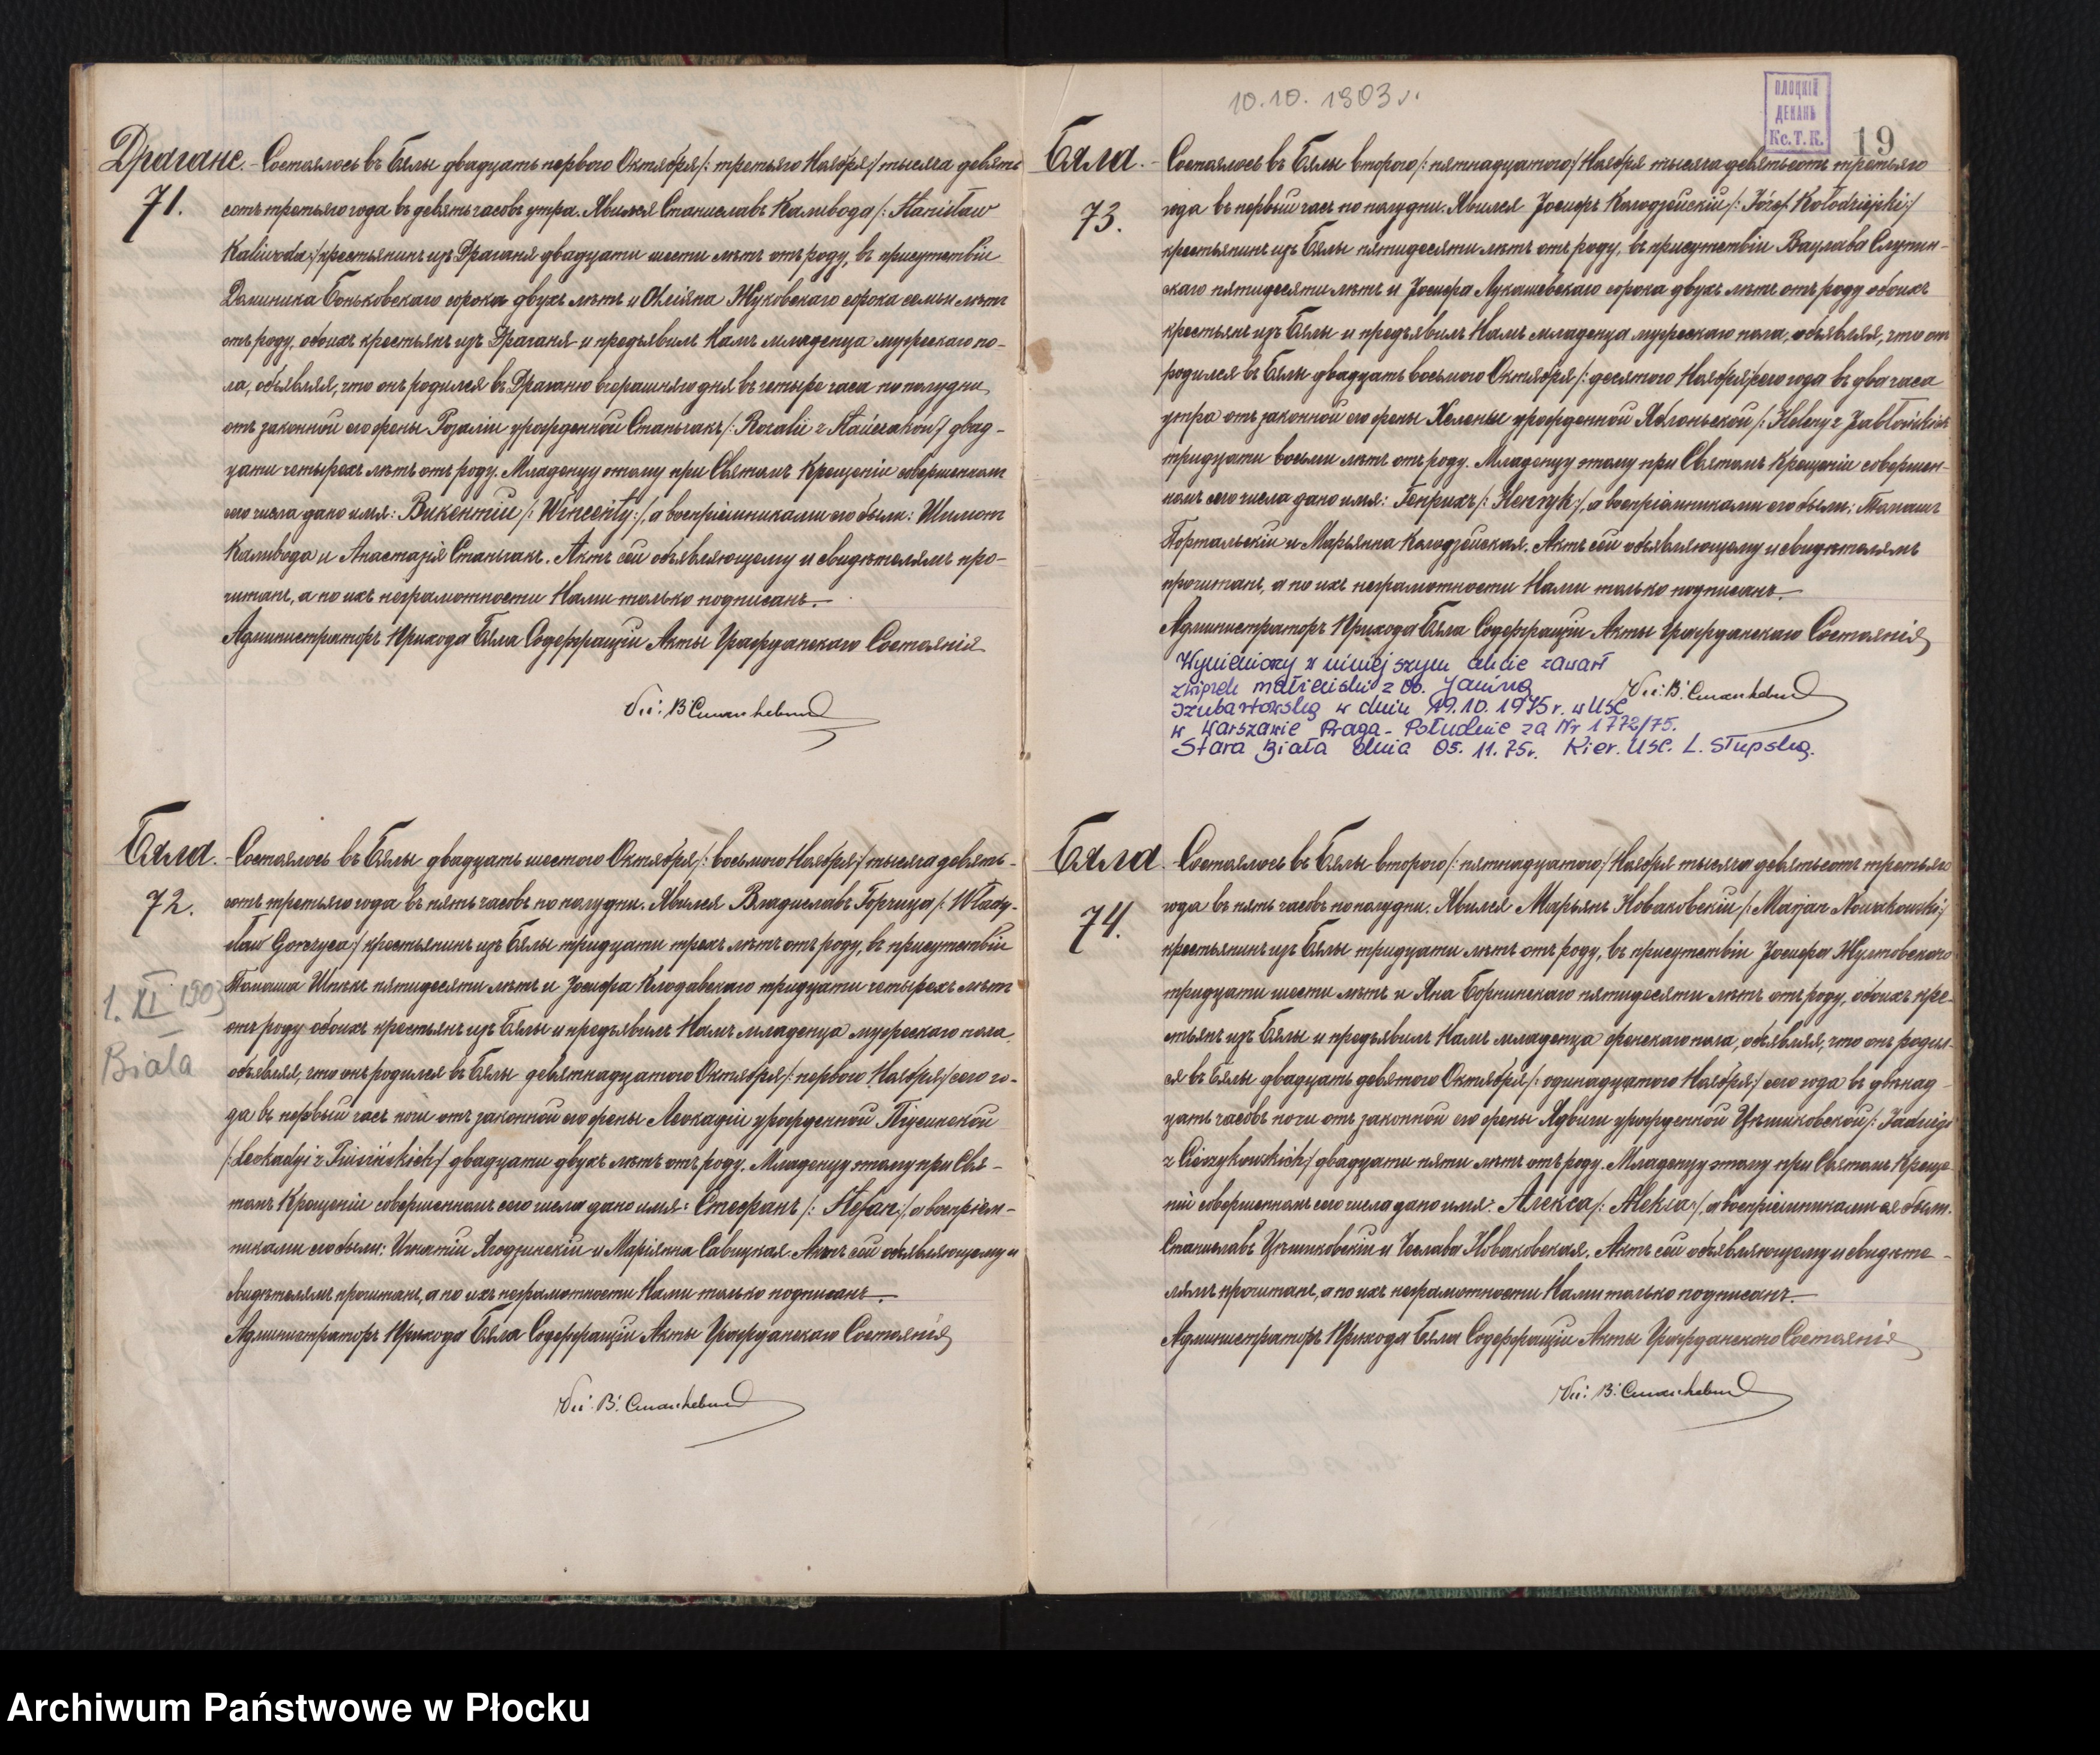 Драгане.
71.
Состоялось въ Бялы двадцать перваго Октября /: третьяго Ноября :/ тысяча девять
сотъ третьяго года въ девять часовъ утра. Явился Станиславъ Каливода /: Stanisław
Kaliwoda :/ крестьянинъ изъ Драганя двадцати шести лѣтъ отъ роду, въ присутствіи
Доминика Боньковскаго сорока двухъ лѣтъ и Жуковскаго сорока семи лѣтъ
отъ роду, обоихъ крестьянъ изъ Драганя и предъявилъ Намъ младенца мужескаго по-
ла, объявляя, что онъ родился въ Драганю вчерашняго дня въ четыре часа по полудни
отъ законной его жены Розаліи урожденной Станьчакъ /: Rozalii z Stańczaków :/ двад-
цати четырехъ лѣтъ отъ роду. Младенцу этому при Святомъ Крещеніи совершенномъ
сего числа дано имя: Викентій /: Wincenty :/, а воспріемниками его были: Шимонъ
Каливода и Анастазія Станьчакъ. Актъ сей объявляющему и свидѣтелямъ про-
читанъ, а по ихъ неграмотности Нами только подписанъ.
Администраторъ Прихода Бяла Содержащій Акты Гражданскаго Состоянія
Кс: В: Станкевичъ
Бяла.
72.
1. XI 1903
Biała
Состоялось въ Бялы двадцать шестого Октября /: восьмого Ноября :/ тысяча девять-
сотъ третьяго года въ пять часовъ по полудни. Явился Владиславъ Горчица /: Włady-
sław Gorczyca :/ крестьянинъ изъ Бялы тридцати трехъ лѣтъ отъ роду, въ присутствіи
Томаша пятидесяти лѣтъ и Іосифа Клодавскаго тридцати четырехъ лѣтъ
отъ роду обоихъ крестьянъ изъ Бялы и предъявилъ Намъ младенца мужескаго пола,
объявляя, что онъ родился въ Бялы девятнадцатого Октября /: первого Ноября :/ сего го-
да въ первый часъ ночи отъ законной его жены Леокадіи урожденной
/: Leokadyi z :/ двадцати двухъ лѣтъ отъ роду. Младенцу этому при Свя-
томъ Крещеніи совершенномъ сего числа дано имя: Стефанъ /: Stefan :/, а воспріем-
никами его были: Игнатій Ягодзинскій и Маріянна Савицкая. Актъ сей объявляющему и
свидѣтелямъ прочитанъ, а по ихъ неграмотности Нами только подписанъ.
Администраторъ Прихода Бяла Содержащій Акты Гражданскаго Состоянія
Кс: В: Станкевичъ
10.10. 1903 r.
ПЛОЦКІЙ
ДЕКАНЪ
Кс.Т.К.
19
Бяла.
73.
Состоялось въ Бялы второго /: пятнадцатого :/ Ноября тысяча девятьсотъ третьяго
года въ первый часъ по полудни. Явился Іосифъ Колодзѣйскій /: Józef Kołodziejski :/
крестьянинъ изъ Бялы пятидесяти лѣтъ отъ роду, въ присутствіи Вацлава Слупин-
скаго пятидесяти лѣтъ и Іосифа Лукашевскаго сорока двухъ лѣтъ отъ роду обоихъ
крестьянъ изъ Бялы и предъявилъ Намъ младенца мужескаго пола, объявляя, что онъ
родился въ Бялы двадцать восьмого Октября /: десятого Ноября :/ сего года въ два часа
утра отъ законной его жены Хелены урожденной Яблоньской /: Heleny z Jabłońskich
тридцати восьми лѣтъ отъ роду. Младенцу этому при Святомъ Крещеніи совершен-
номъ сего числа дано имя: Генрихъ /: Henryk :/, а воспріемниками его были: Томашъ
Портальскій и Марьянна Колодзѣйская. Актъ сей объявляющему и свидѣтелямъ
прочитанъ, а по ихъ неграмотности Нами только подписанъ.
Администраторъ Прихода Бяла Содержащій Акты Гражданскаго Состоянія
Кс: В: Станкевичъ
Wymieniony w niniejszym akcie zawarł
związek małżeński z ob. Janiną
Szubartowską w dniu 19.10.1975 r. w USC
w Warszawie Praga - Południe za Nr 1772/75.
Stara Biała dnia 05.11.75r. Kier. USC. L. Słupska.
Бяла
74.
Состоялось въ Бялы второго /: пятнадцатого :/ Ноября тысяча девятьсотъ третьяго
года въ пять часовъ по полудни. Явился Марьянъ Новаковскій /: Marjan Nowakowski :/
крестьянинъ изъ Бялы тридцати лѣтъ отъ роду, въ присутствіи Іосифа Жултовскаго
тридцати шести лѣтъ и Яна пятидесяти лѣтъ отъ роду, обоихъ кре-
стьянъ изъ Бялы и предъявилъ Намъ младенца женскаго пола, объявляя, что онъ родил-
ся въ Бялы двадцать девятого Октября /: одинадцатого Ноября :/ сего года въ двѣнад-
цать часовъ ночи отъ законной его жены Ядвиги урожденной Цѣшиковской /: Jadwigi
z Cieszykowskich :/ двадцати пяти лѣтъ отъ роду. Младенцу этому при Святомъ Креще-
ніи совершенномъ сего числа дано имя: Алекса /: Aleksa :/, а воспріемниками ея были:
Станиславъ Цѣшиковскій и Чеслава Новаковская. Актъ сей объявляющему и свидѣте-
лямъ прочитанъ, а по ихъ неграмотности Нами только подписанъ.
Администраторъ Прихода Бяла Содержащій Акты Гражданскаго Состоянія
Кс: В: Станкевичъ
Archiwum Państwowe w Płocku